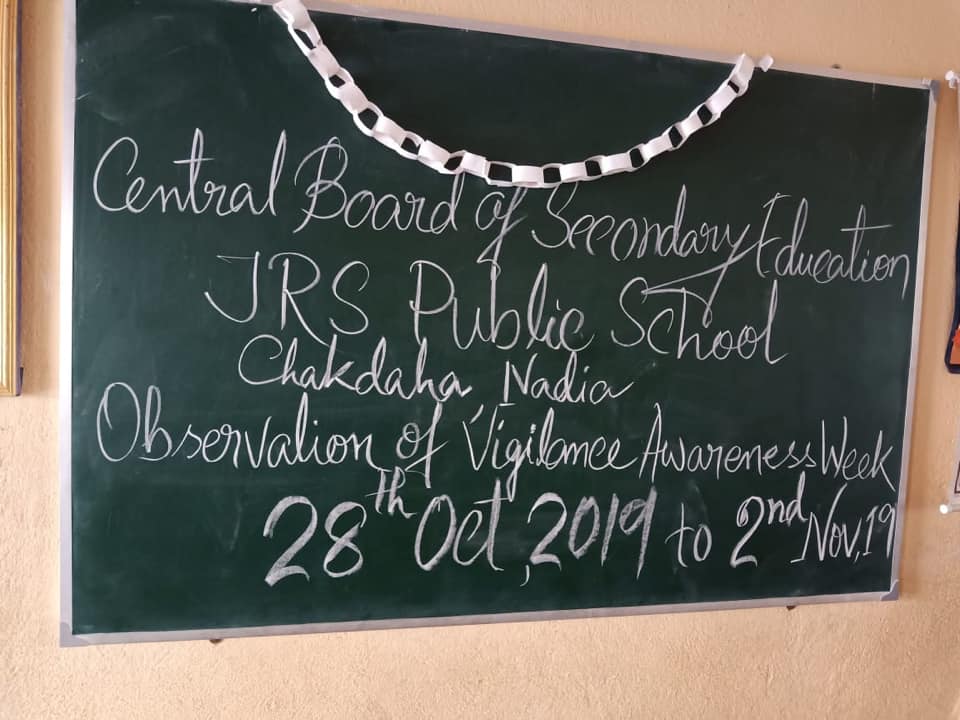 Central Board of Secondary Education
JRS Public School
Chakdaha, Nadia
Observation of Vigilance Awareness Week
28th Oct, 2019 to 2nd Nov, 19